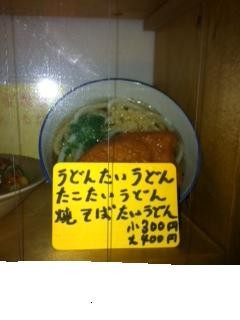 うどんたいうどん
たこたいうどん
焼てばたいうどん
小300円
大400円